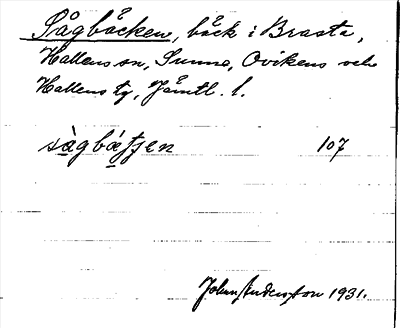 Sågbäcken, bäck i Brasta,
Hallens sn, Sunne, Ovikens och
Hallens tg, Jämtl. l.
sàgbátjen 107
John Anderson 1931.